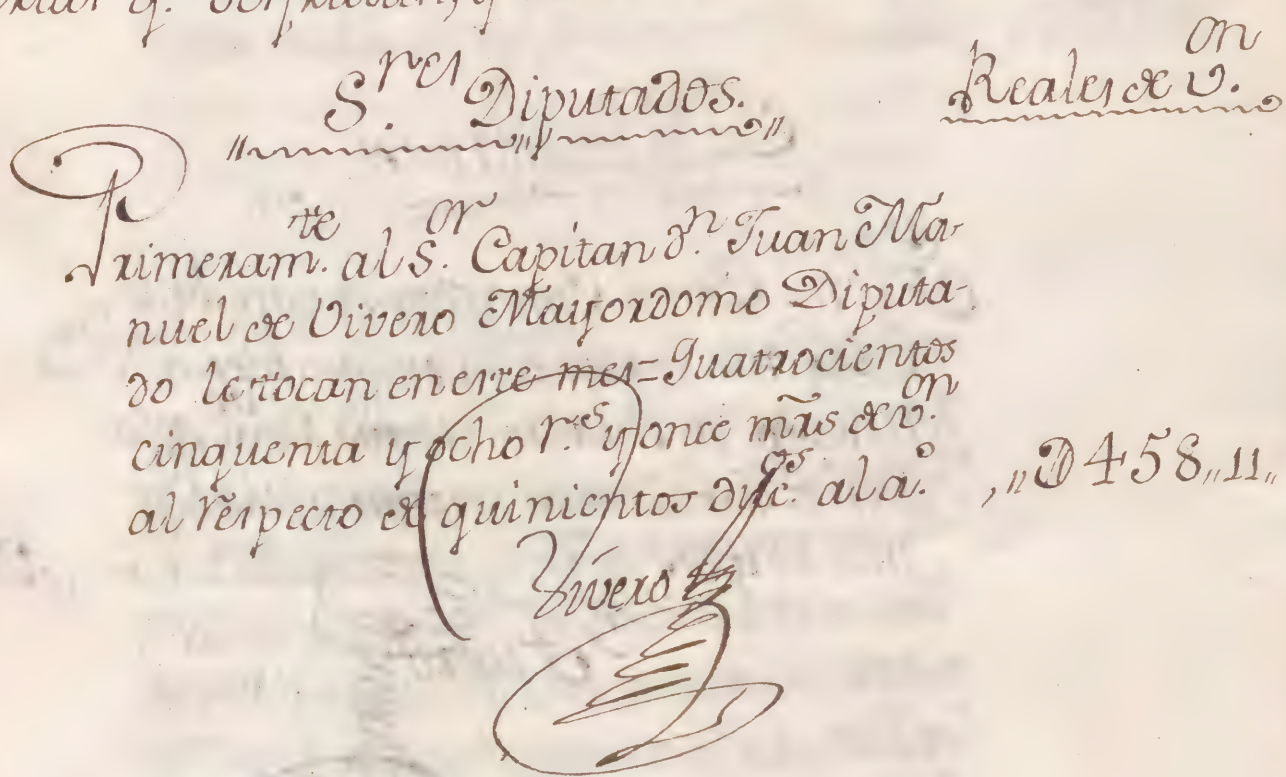 S.res Diputados. Reales de v.on
Primeram.te al S.or Capitan d.n Juan Ma-
nuel de Vivero Mayordomo Diputa-
do le tocan en este mes = Quatrocientos
cinquenta y ocho r.s y once mrs de v.on
al respecto de quinientos duc.os al a.o ,,, D 458,, 11,,
Vivero